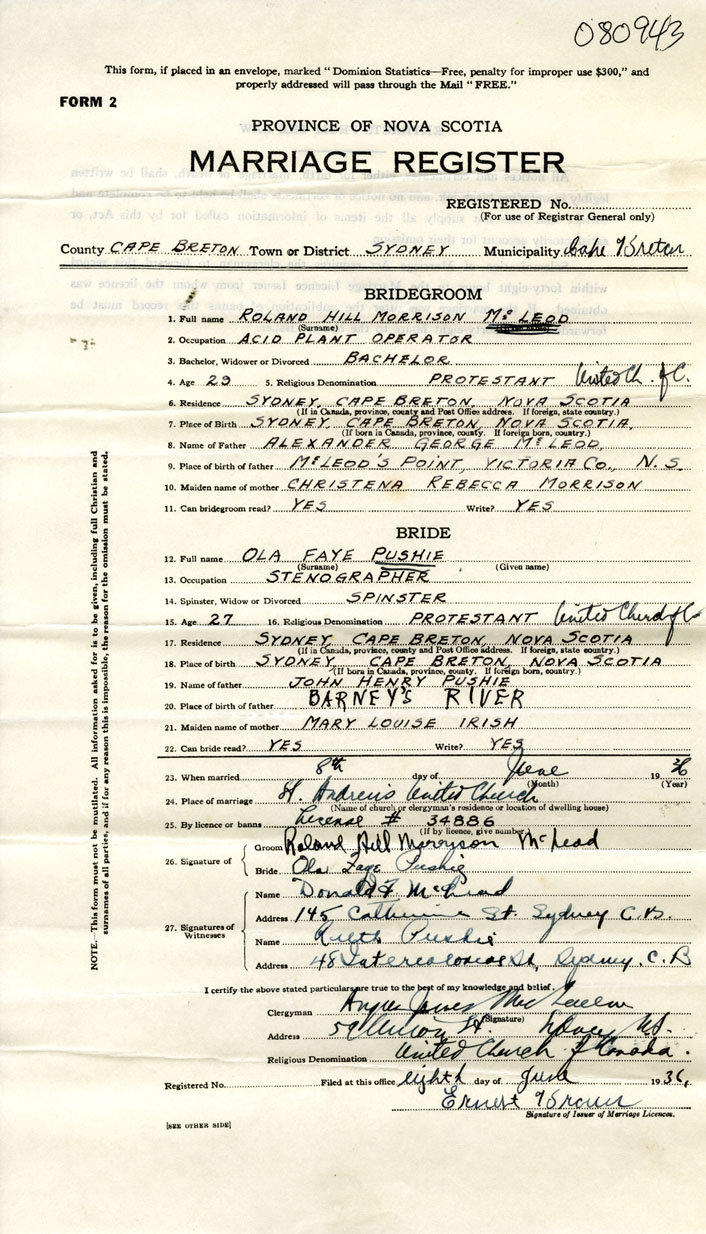 080943
This form, if placed in an envelope, marked "Dominion Statistics—Free, penalty for improper use $300," and
properly addressed will pass through the Mail "FREE."
FORM 2
PROVINCE OF NOVA SCOTIA
MARRIAGE REGISTER
REGISTERED No.
(For use of Registrar General only)
County CAPE BRETON Town or District SYDNEY Municipality Cape Breton
BRIDEGROOM
1. Full name ROLAND HILL MORRISON McLEOD
(Surname)
2. Occupation ACID PLANT OPERATOR
3. Bachelor, Widower or Divorced BACHELOR
4. Age 29 5. Religious Denomination PROTESTANT United Ch. of C.
6. Residence SYDNEY, CAPE BRETON, NOVA SCOTIA
(If in Canada, province, county and Post Office address. If foreign, state country.)
7. Place of Birth SYDNEY, CAPE BRETON, NOVA SCOTIA,
(If born in Canada, province, county. If foreign born, country.)
8. Name of Father ALEXANDER GEORGE McLEOD,
9. Place of birth of father McLEOD'S POINT, VICTORIA Co., N.S.
10. Maiden name of mother CHRISTENA REBECCA MORRISON
11. Can bridegroom read? YES Write? YES
BRIDE
12. Full name OLA FAYE PUSHIE
(Surname) (Given name)
13. Occupation STENOGRAPHER
14. Spinster, Widow or Divorced SPINSTER
15. Age 27 16. Religious Denomination PROTESTANT United Church of C
17. Residence SYDNEY, CAPE BRETON, NOVA SCOTIA
(If in Canada, province, county and Post Office address. If foreign, state country.)
18. Place of birth SYDNEY, CAPE BRETON, NOVA SCOTIA
(If born in Canada, province, county. If foreign born, country.)
19. Name of father JOHN HENRY PUSHIE
20. Place of birth of father BARNEY'S RIVER
21. Maiden name of mother MARY LOUISE IRISH
22. Can bride read? YES Write? YES
23. When married 8th day of June 1936
(Month) (Year)
24. Place of marriage St. Andrew's United Church
(Name of church or clergyman's residence or location of dwelling house)
25. By licence or banns License # 34886
(If by licence, give number)
26. Signature of
Groom Roland Hill Morrison McLeod
Bride Ola Faye Pushie
27. Signatures of Witnesses
Name Donald F McLeod
Address 145 Catherine St. Sydney C.B.
Name Ruth Pushie
Address 48 Intercolonial St, Sydney. C.B
I certify the above stated particulars are true to the best of my knowledge and belief.
Clergyman Angus James MacLellan
(Signature)
Address St. Sydney N.S.
Religious Denomination United Church of Canada.
Registered No. Filed at this office eighth day of June 1936,
Ernest Brown
Signature of Issuer of Marriage Licences.
[SEE OTHER SIDE]
NOTE.—This form must not be mutilated. All information asked for is to be given, including full Christian and
surnames of all parties, and if for any reason this is impossible, the reason for the omission must be stated.